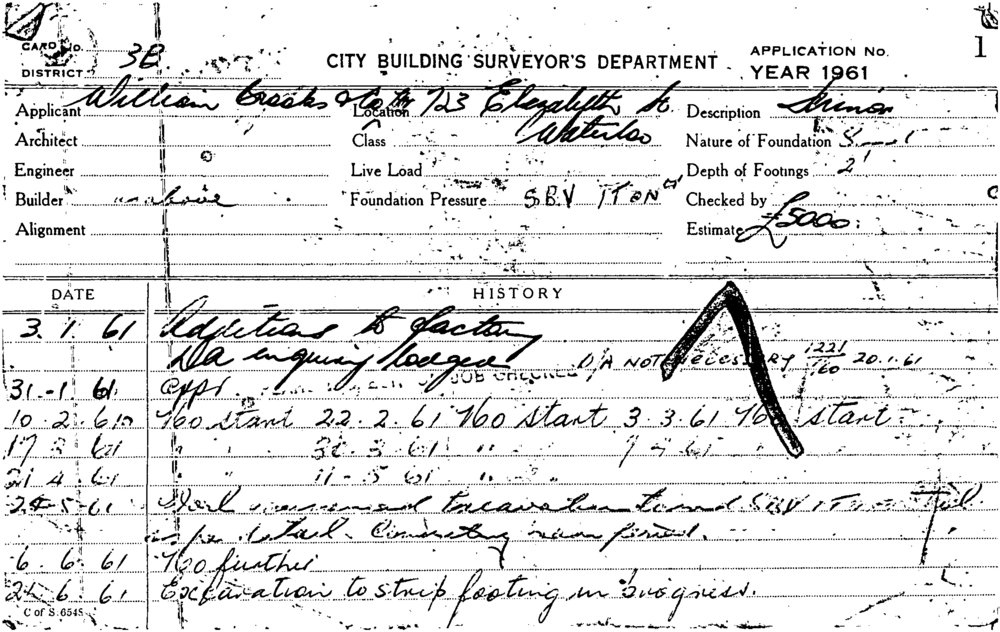 CARD No. 3B CITY BUILDING SURVEYOR'S DEPARTMENT APPLICATION No. 1
DISTRICT YEAR 1961
Applicant William Brooks & Co Location 723 Elizabeth St Description Minor
Waterloo
Architect Class Nature of Foundation
Engineer Live Load Depth of Footings 2'
Builder as above Foundation Pressure SBV 1 TON Checked by
Alignment Estimate £5000.
DATE HISTORY
3. 1. 61 Additions to factory
DA enquiry lodged DA NOT NECESSARY 1221/60 20.1.61
31. -1 61 JOB CHECKED
10. 2. 61 No start 22. 2. 61 No start 3. 3. 61 No start
17 3 61 " " 3. 61 " "
21. 4. 61 " " 11 - 5 61 " "
5-61 Work commenced Excavation SBV 1T
as per detail.
6. 6. 61 No further
6. 61 Excavation to strip footing in progress.
C of S. 6545